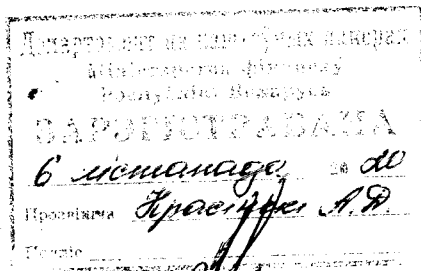 Дэпартамент па каштоўных паперах
Міністэрства фінансаў
Рэспублікі Беларусь
ЗАРЭГІСТРАВАНА
6 лістапада 20 20
Прозвішча
А.Д.
Подпіс